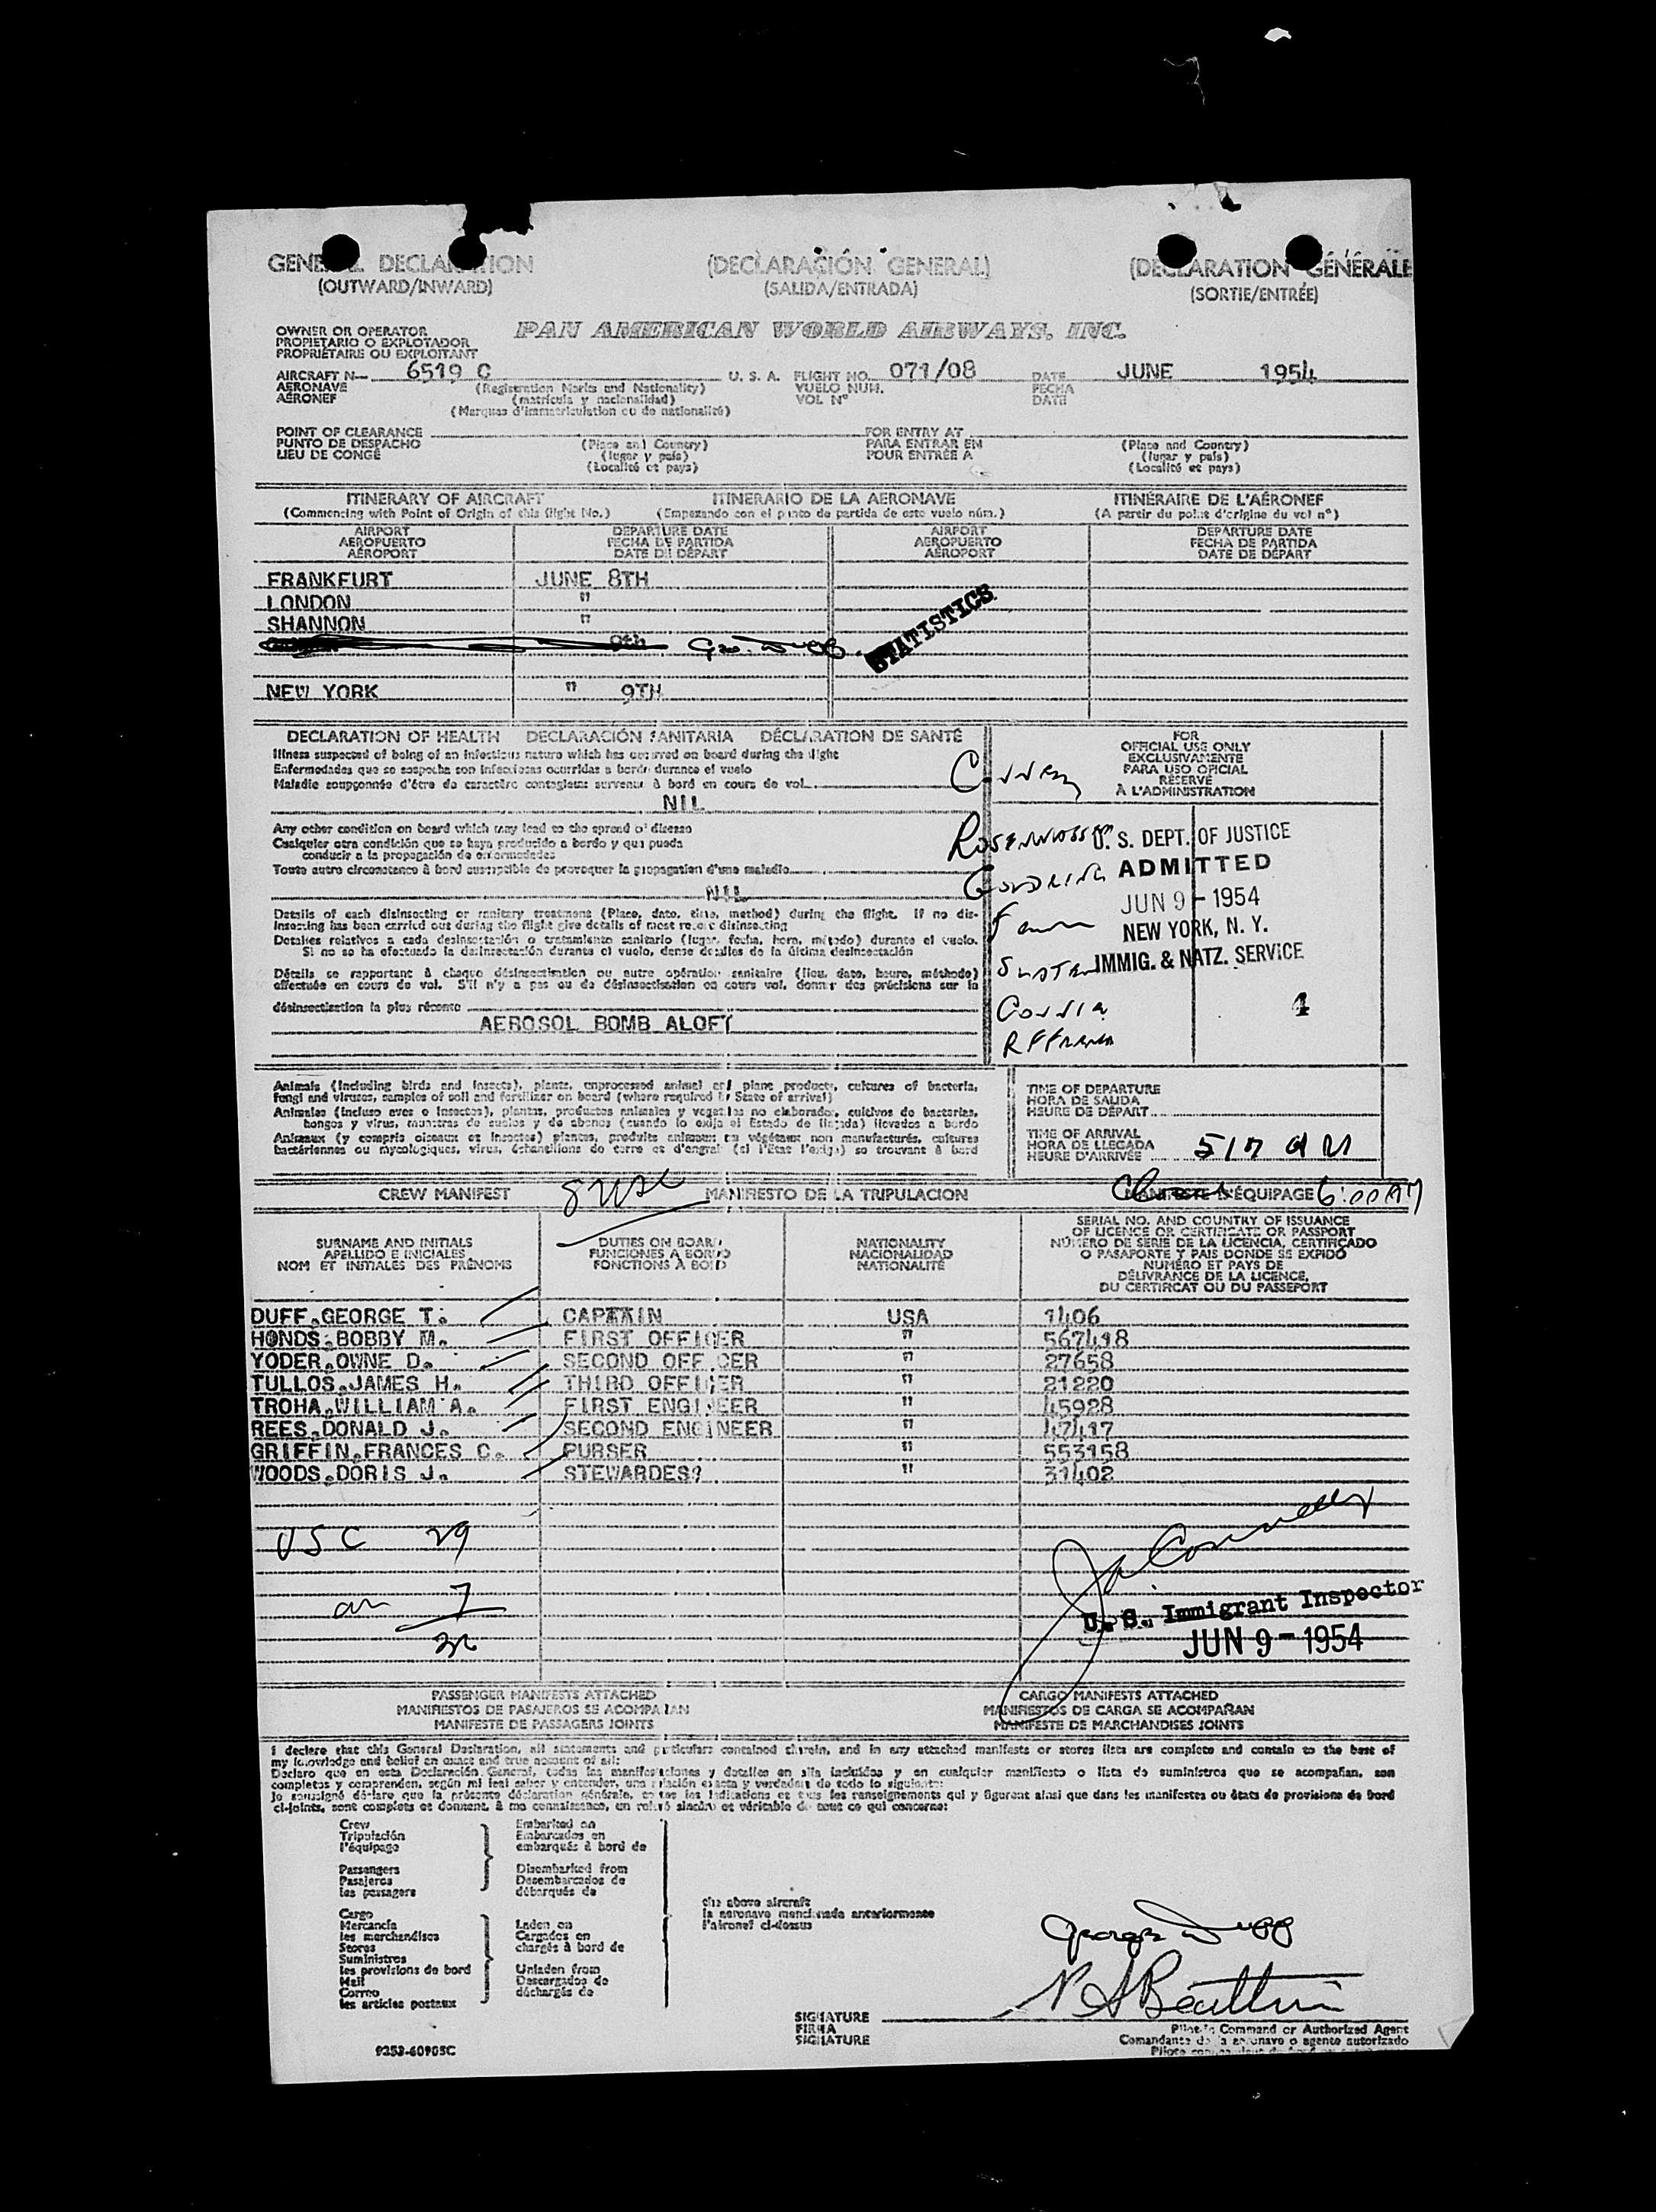 GENERAL DECLARATION (DECLARACIÓN GENERAL) (DECLARATION GÉNÉRALE
(OUTWARD/INWARD) (SALIDA/ENTRADA) (SORTIE/ENTRÉE)
OWNER OR OPERATOR
PROPIETARIO O EXPLOTADOR
PROPRIÉTAIRE OU EXPLOITANT
PAN AMERICAN WORLD AIRWAYS, INC.
AIRCRAFT N- 6519 C U. S. A. FLIGHT NO. 071/08 DATE JUNE 1954
AERONAVE (Registration Marks and Nationality) VUELO NUM. FECHA
AÉRONEF (matrícula y nacionalidad) VOL N° DATE
(Marques d'immatriculation ou de nationalité)
POINT OF CLEARANCE FOR ENTRY AT
PUNTO DE DESPACHO (Place and Country) PARA ENTRAR EN (Place and Country)
LIEU DE CONGÉ (lugar y país) POUR ENTRÉE A (lugar y país)
(Localité et pays) (Localité et pays)
ITINERARY OF AIRCRAFT ITINERARIO DE LA AERONAVE ITINÉRAIRE DE L'AÉRONEF
(Commencing with Point of Origin of this flight No.) (Empezando con el punto de partida de este vuelo núm.) (A partir du point d'origine du vol n°)
AIRPORT DEPARTURE DATE AIRPORT DEPARTURE DATE
AEROPUERTO FECHA DE PARTIDA AEROPUERTO FECHA DE PARTIDA
AÉROPORT DATE DE DÉPART AÉROPORT DATE DE DÉPART
FRANKFURT JUNE 8TH
LONDON "
SHANNON "
9th
STATISTICS
NEW YORK " 9TH
DECLARATION OF HEALTH DECLARACIÓN SANITARIA DÉCLARATION DE SANTÉ
Illness suspected of being of an infectious nature which has occurred on board during the flight
Enfermedades que se sospecha son infecciosas ocurridas a bordo durante el vuelo
Maladie soupçonnée d'être de caractère contagieux survenue à bord en cours de vol
NIL
Any other condition on board which may lead to the spread of disease
Cualquier otra condición que se haya producido a bordo y que pueda
conducir a la propagación de enfermedades
Toute autre circonstance à bord susceptible de provoquer la propagation d'une maladie
NIL
Details of each disinsecting or sanitary treatment (Place, date, time, method) during the flight. If no dis-
insecting has been carried out during the flight give details of most recent disinsecting
Detalles relativos a cada desinsectación o tratamiento sanitario (lugar, fecha, hora, método) durante el vuelo.
Si no se ha efectuado la desinsectación durante el vuelo, dense detalles de la última desinsectación
Détails se rapportant à chaque désinsectisation ou autre opération sanitaire (lieu, date, heure, méthode)
effectuée en cours de vol. S'il n'y a pas eu de désinsectisation en cours vol, donner des précisions sur la
désinsectisation la plus récente
AEROSOL BOMB ALOFT
FOR
OFFICIAL USE ONLY
EXCLUSIVAMENTE
PARA USO OFICIAL
RÉSERVÉ
À L'ADMINISTRATION
U. S. DEPT. OF JUSTICE
ADMITTED
JUN 9 - 1954
NEW YORK, N. Y.
IMMIG. & NATZ. SERVICE
4
Animals (Including birds and insects), plants, unprocessed animal and plant products, cultures of bacteria,
fungi and viruses, samples of soil and fertilizer on board (where required by State of arrival)
Animales (incluso aves e insectos), plantas, productos animales y vegetales no elaborados, cultivos de bacterias,
hongos y virus, muestras de suelos y de abonos (cuando lo exija el Estado de llegada) llevados a bordo
Animaux (y compris oiseaux et insectes) plantes, produits animaux ou végétaux non manufacturés, cultures
bactériennes ou mycologiques, virus, échantillons de terre et d'engrais (si l'État l'exige) se trouvant à bord
TIME OF DEPARTURE
HORA DE SALIDA
HEURE DE DÉPART
TIME OF ARRIVAL
HORA DE LLEGADA
HEURE D'ARRIVÉE 517 AM
CREW MANIFEST 8 USC MANIFIESTO DE LA TRIPULACION MANIFESTE D'ÉQUIPAGE 6:00 AM
SURNAME AND INITIALS DUTIES ON BOARD NATIONALITY SERIAL NO. AND COUNTRY OF ISSUANCE
APELLIDO E INICIALES FUNCIONES A BORDO NACIONALIDAD OF LICENCE OR CERTIFICATE OR PASSPORT
NOM ET INITIALES DES PRÉNOMS FONCTIONS À BORD NATIONALITÉ NÚMERO DE SERIE DE LA LICENCIA, CERTIFICADO
O PASAPORTE Y PAIS DONDE SE EXPIDÓ
NUMÉRO ET PAYS DE
DÉLIVRANCE DE LA LICENCE,
DU CERTIFICAT OU DU PASSEPORT
DUFF,GEORGE T. CAPTAIN USA 1406
HONDS,BOBBY M. FIRST OFFICER " 567418
YODER,OWNE D. SECOND OFFICER " 27658
TULLOS,JAMES H. THIRD OFFICER " 21220
TROHA,WILLIAM A. FIRST ENGINEER " 45928
REES,DONALD J. SECOND ENGINEER " 47417
GRIFFIN,FRANCES C. PURSER " 553158
WOODS,DORIS J. STEWARDESS " 31402
USC 29
7
U. S. Immigrant Inspector
JUN 9 - 1954
PASSENGER MANIFESTS ATTACHED CARGO MANIFESTS ATTACHED
MANIFIESTOS DE PASAJEROS SE ACOMPAÑAN MANIFIESTOS DE CARGA SE ACOMPAÑAN
MANIFESTE DE PASSAGERS JOINTS MANIFESTE DE MARCHANDISES JOINTS
I declare that this General Declaration, all statements and particulars contained therein, and in any attached manifests or stores lists are complete and contain to the best of
my knowledge and belief an exact and true account of all:
Declaro que en esta Declaración General, todas las manifestaciones y detalles en ella incluídos y en cualquier manifiesto o lista de suministros que se acompañan, son
completos y comprenden, según mi leal saber y entender, una relación exacta y verdadera de todo lo siguiente:
Je soussigné déclare que la présente déclaration générale, toutes les indications et tous les renseignements qui y figurent ainsi que dans les manifestes ou états de provisions de bord
ci-joints, sont complets et donnent, à ma connaissance, un relevé sincère et véritable de tout ce qui concerne:
Crew Embarked on
Tripulación Embarcados en
l'équipage embarqués à bord de
Passengers Disembarked from
Pasajeros Desembarcados de
les passagers débarqués de
Cargo
Mercancía Laden on
les marchandises Cargados en
Stores chargés à bord de
Suministros
les provisions de bord Unladen from
Mail Descargados de
Correo déchargés de
les articles postaux
the above aircraft
la aeronave mencionada anteriormente
l'aéronef ci-dessus
SIGNATURE
FIRMA
SIGNATURE
Pilot in Command or Authorized Agent
Comandante de la aeronave o agente autorizado
9253-60905C